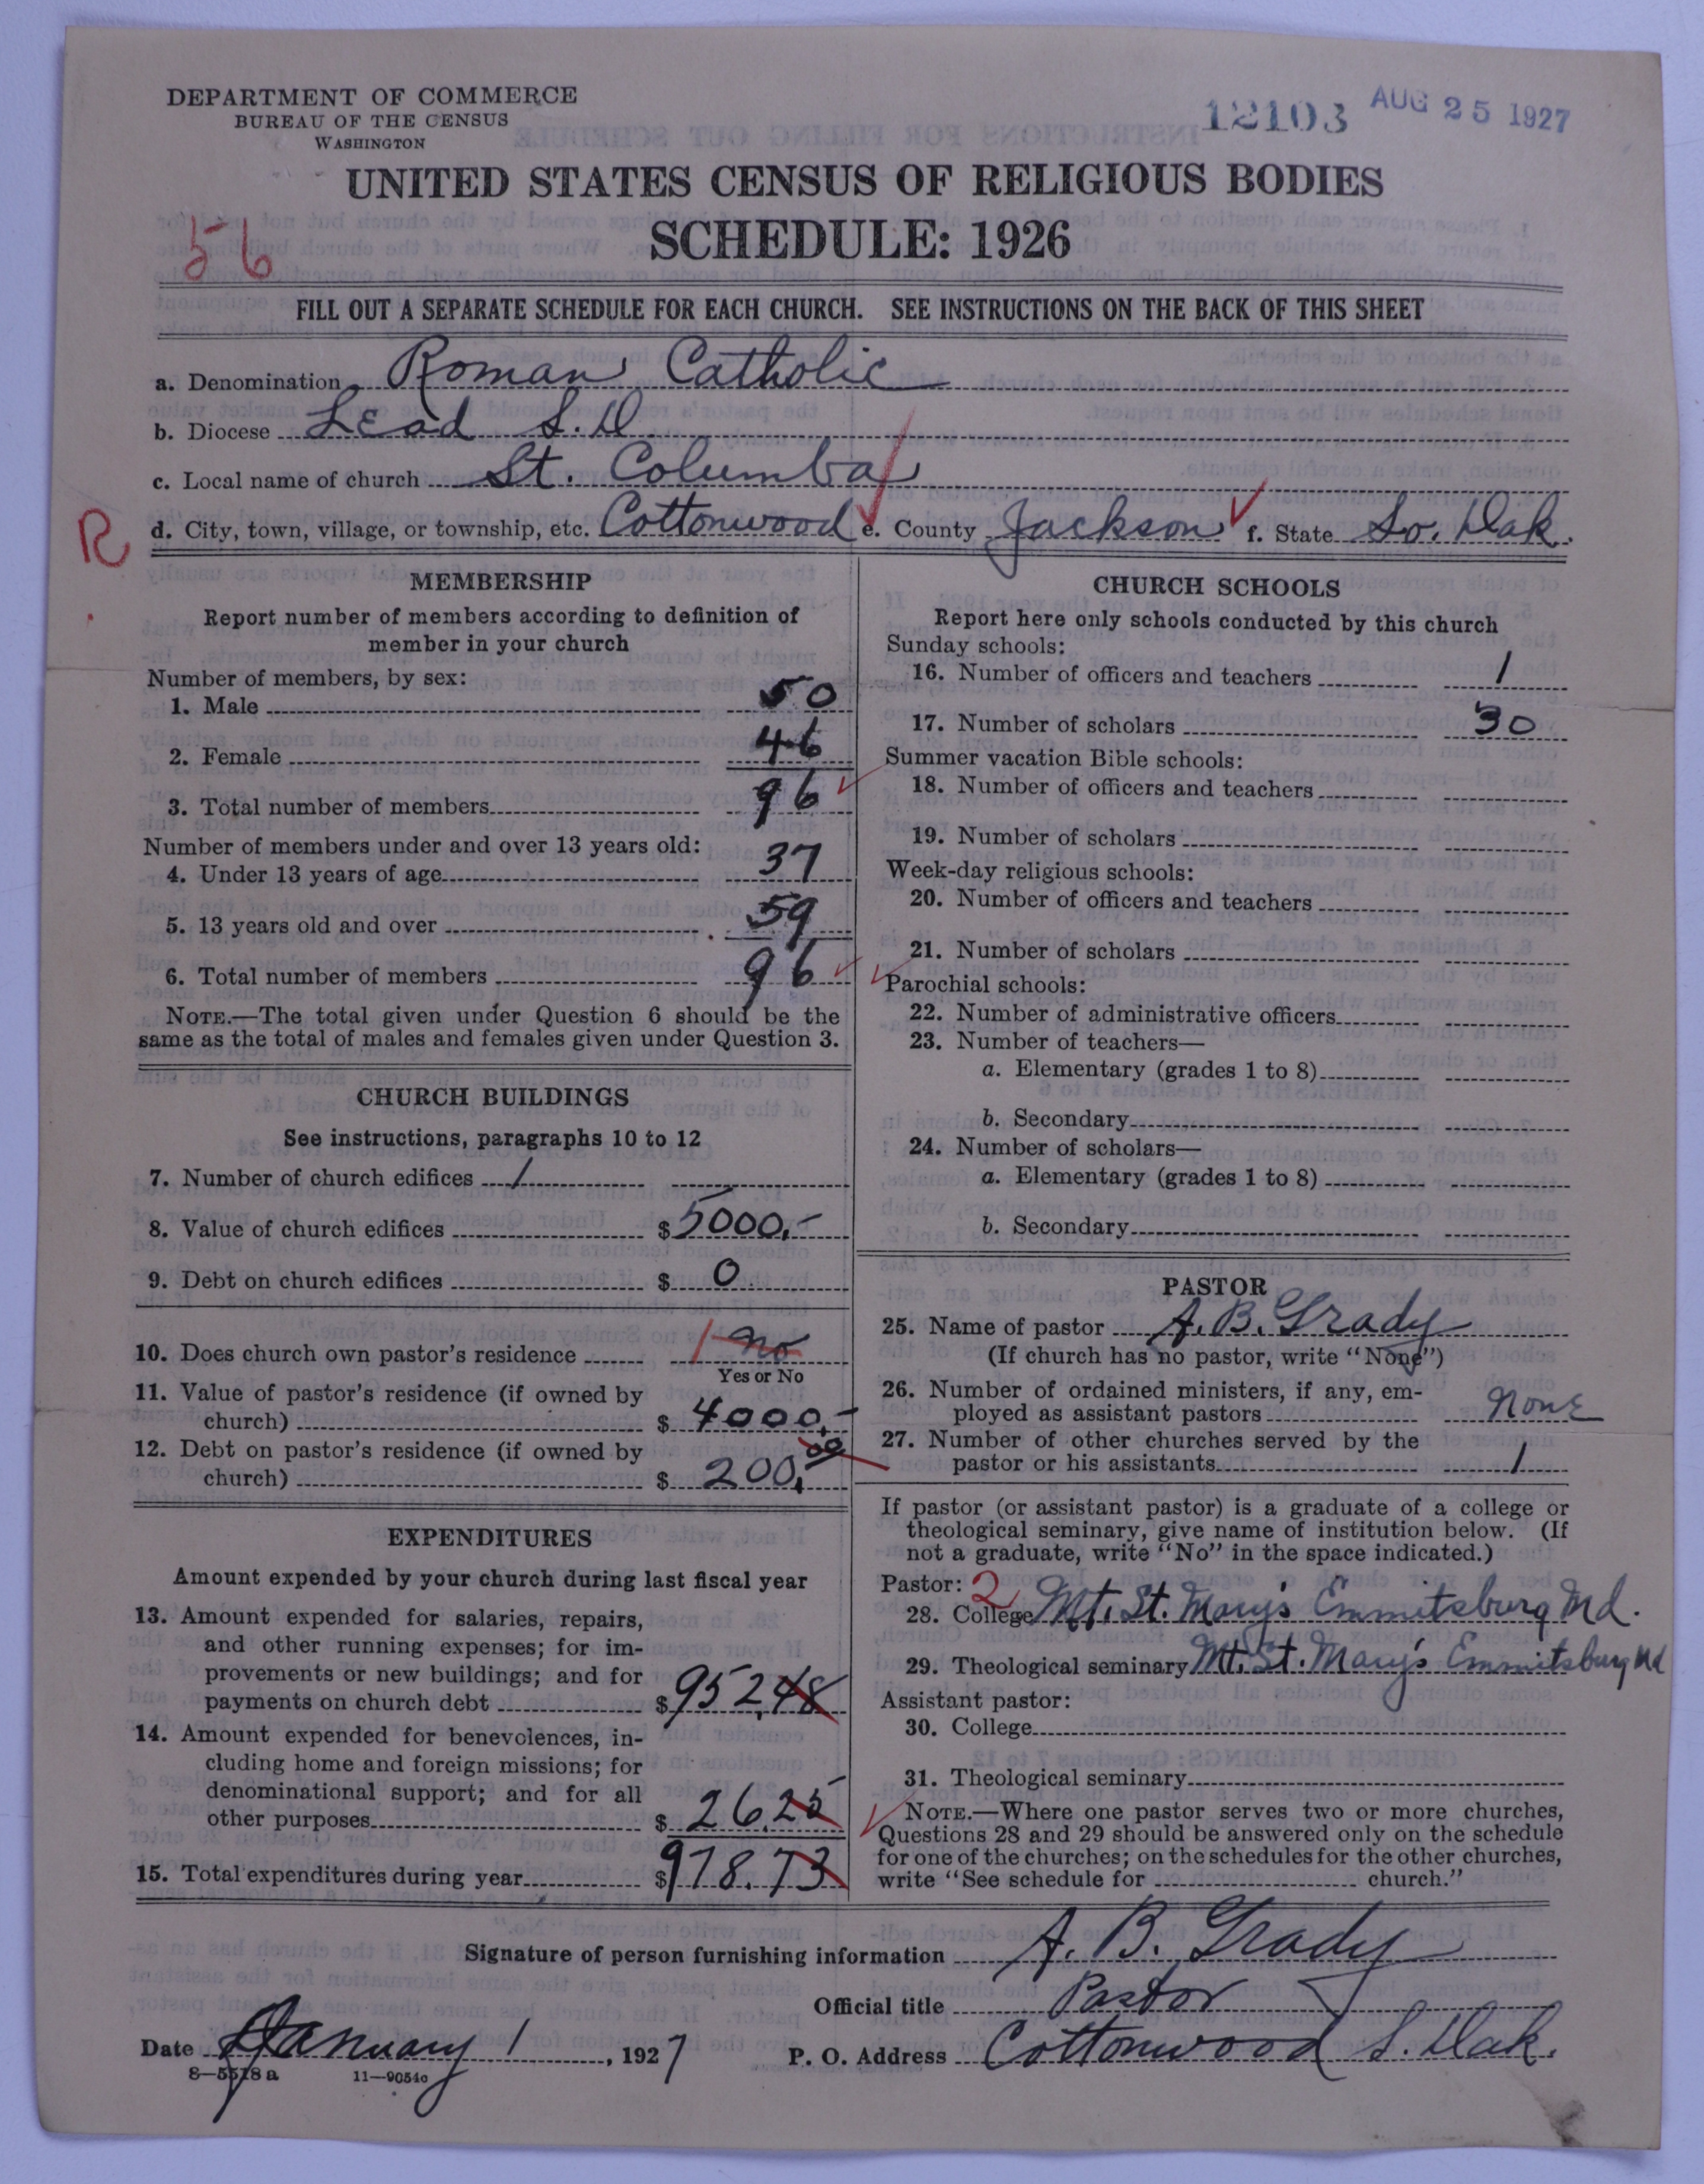 DEPARTMENT OF COMMERCE
BUREAU OF THE CENSUS
WASHINGTON
12103 AUG 25 1927
UNITED STATES CENSUS OF RELIGIOUS BODIES
SCHEDULE: 1926
56
FILL OUT A SEPARATE SCHEDULE FOR EACH CHURCH. SEE INSTRUCTIONS ON THE BACK OF THIS SHEET
a. Denomination Roman Catholic
b. Diocese Lead S.D.
c. Local name of church St. Columba
R
d. City, town, village, or township, etc. Cottonwood e. County Jackson f. State So. Dak.
MEMBERSHIP
Report number of members according to definition of
member in your church
Number of members, by sex:
1. Male 50
2. Female 46
3. Total number of members 96
Number of members under and over 13 years old:
4. Under 13 years of age 37
5. 13 years old and over 59
6. Total number of members 96
NOTE.—The total given under Question 6 should be the
same as the total of males and females given under Question 3.
CHURCH BUILDINGS
See instructions, paragraphs 10 to 12
7. Number of church edifices 1
8. Value of church edifices $ 5000.-
9. Debt on church edifices $ 0
10. Does church own pastor's residence 1 no
Yes or No
11. Value of pastor's residence (if owned by
church) $ 4000.-
12. Debt on pastor's residence (if owned by
church) $ 200.00
EXPENDITURES
Amount expended by your church during last fiscal year
13. Amount expended for salaries, repairs,
and other running expenses; for im-
provements or new buildings; and for
payments on church debt $ 952.48
14. Amount expended for benevolences, in-
cluding home and foreign missions; for
denominational support; and for all
other purposes $ 26.25
15. Total expenditures during year $ 978.73
CHURCH SCHOOLS
Report here only schools conducted by this church
Sunday schools:
16. Number of officers and teachers 1
17. Number of scholars 30
Summer vacation Bible schools:
18. Number of officers and teachers
19. Number of scholars
Week-day religious schools:
20. Number of officers and teachers
21. Number of scholars
Parochial schools:
22. Number of administrative officers
23. Number of teachers—
a. Elementary (grades 1 to 8)
b. Secondary
24. Number of scholars—
a. Elementary (grades 1 to 8)
b. Secondary
PASTOR
25. Name of pastor A. B. Grady
(If church has no pastor, write "None")
26. Number of ordained ministers, if any, em-
ployed as assistant pastors none
27. Number of other churches served by the
pastor or his assistants 1
If pastor (or assistant pastor) is a graduate of a college or
theological seminary, give name of institution below. (If
not a graduate, write "No" in the space indicated.)
Pastor: 2
28. College Mt. St. Mary's Emmitsburg Md.
29. Theological seminary Mt. St. Mary's Emmitsburg Md
Assistant pastor:
30. College
31. Theological seminary
NOTE.—Where one pastor serves two or more churches,
Questions 28 and 29 should be answered only on the schedule
for one of the churches; on the schedules for the other churches,
write "See schedule for church."
Signature of person furnishing information A. B. Grady
Official title Pastor
Date January 1, 1927 P. O. Address Cottonwood S. Dak.
8—5518a 11—9054c